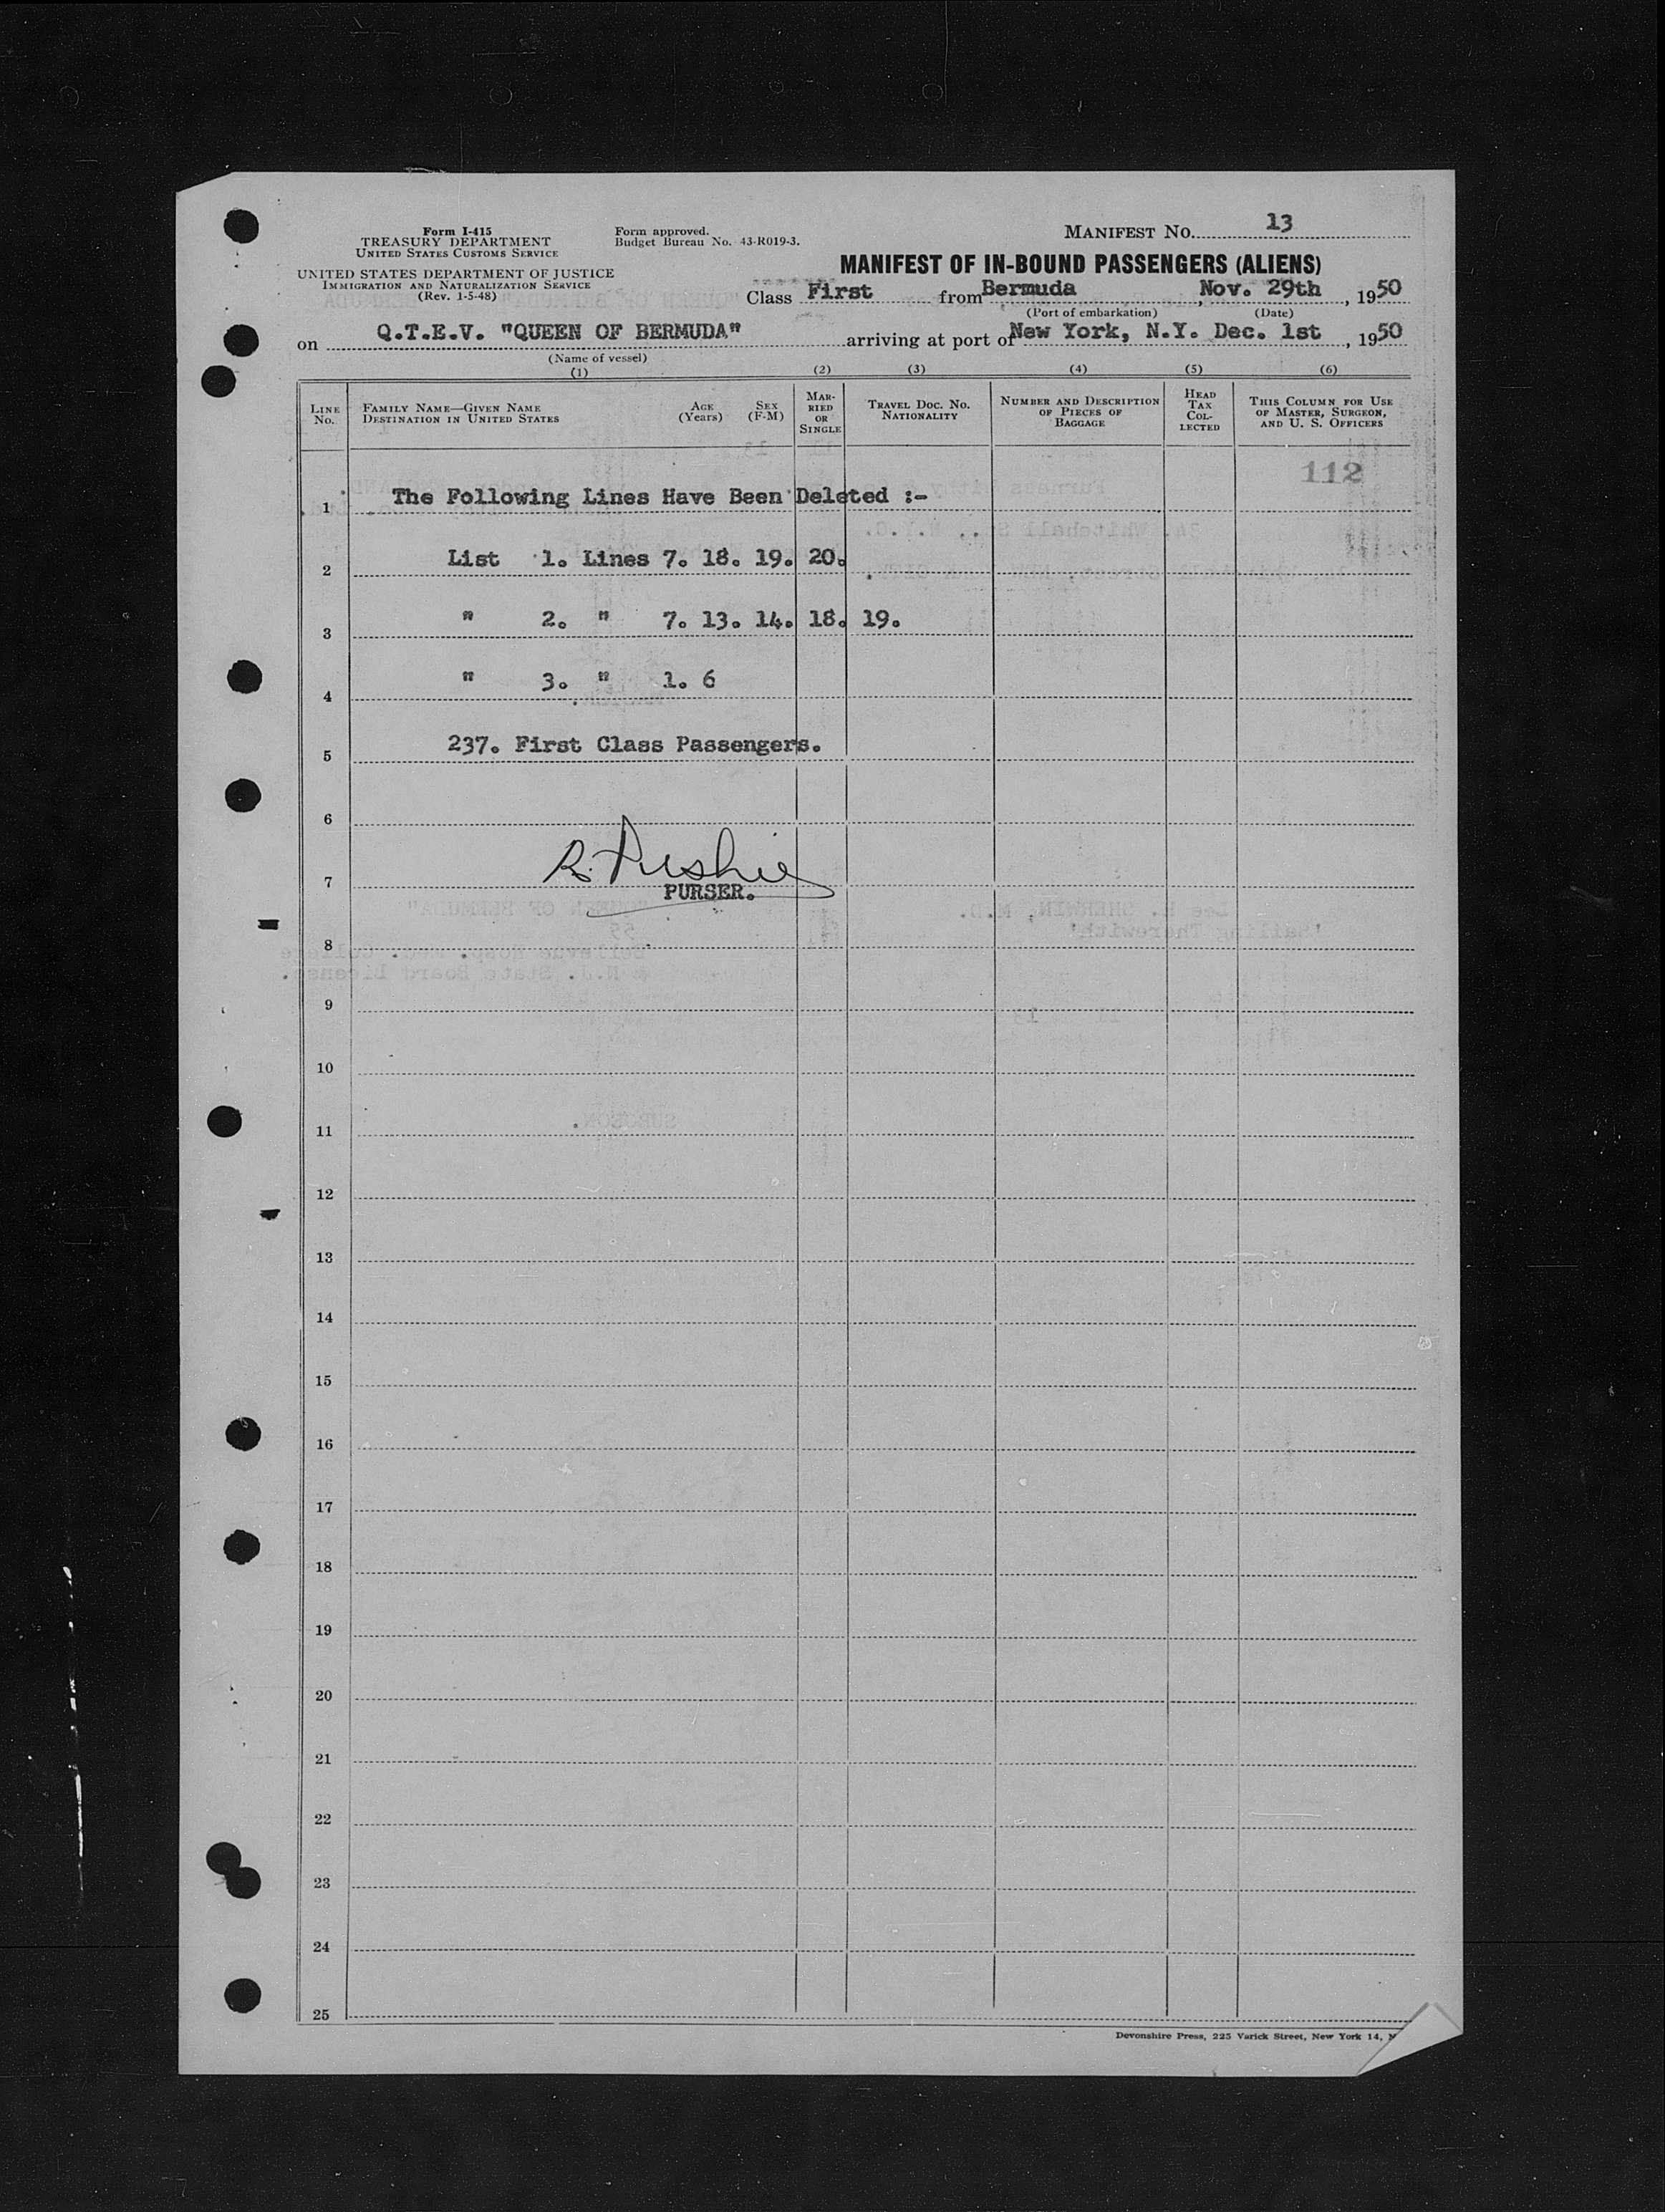 Form I-415
TREASURY DEPARTMENT
UNITED STATES CUSTOMS SERVICE
UNITED STATES DEPARTMENT OF JUSTICE
IMMIGRATION AND NATURALIZATION SERVICE
(Rev. 1-5-48)
Form approved.
Budget Bureau No. 43-R019-3.
MANIFEST NO. 13
MANIFEST OF IN-BOUND PASSENGERS (ALIENS)
Class First from Bermuda, Nov. 29th, 1950
(Port of embarkation) (Date)
on Q.T.E.V. "QUEEN OF BERMUDA" arriving at port of New York, N.Y. Dec. 1st, 1950
(Name of vessel)
(1) (2) (3) (4) (5) (6)
LINE NO.
FAMILY NAME—GIVEN NAME
DESTINATION IN UNITED STATES
AGE (Years)
SEX (F-M)
MARRIED OR SINGLE
TRAVEL DOC. NO.
NATIONALITY
NUMBER AND DESCRIPTION OF PIECES OF BAGGAGE
HEAD TAX COLLECTED
THIS COLUMN FOR USE OF MASTER, SURGEON, AND U. S. OFFICERS
112
1 The Following Lines Have Been Deleted :-
2 List 1. Lines 7. 18. 19. 20.
3 " 2. " 7. 13. 14. 18. 19.
4 " 3. " 1. 6
5 237. First Class Passengers.
6
7 PURSER.
8
9
10
11
12
13
14
15
16
17
18
19
20
21
22
23
24
25
Devonshire Press, 225 Varick Street, New York 14,